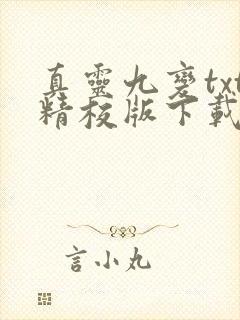 真靈九變txt
精校版下載
言小丸